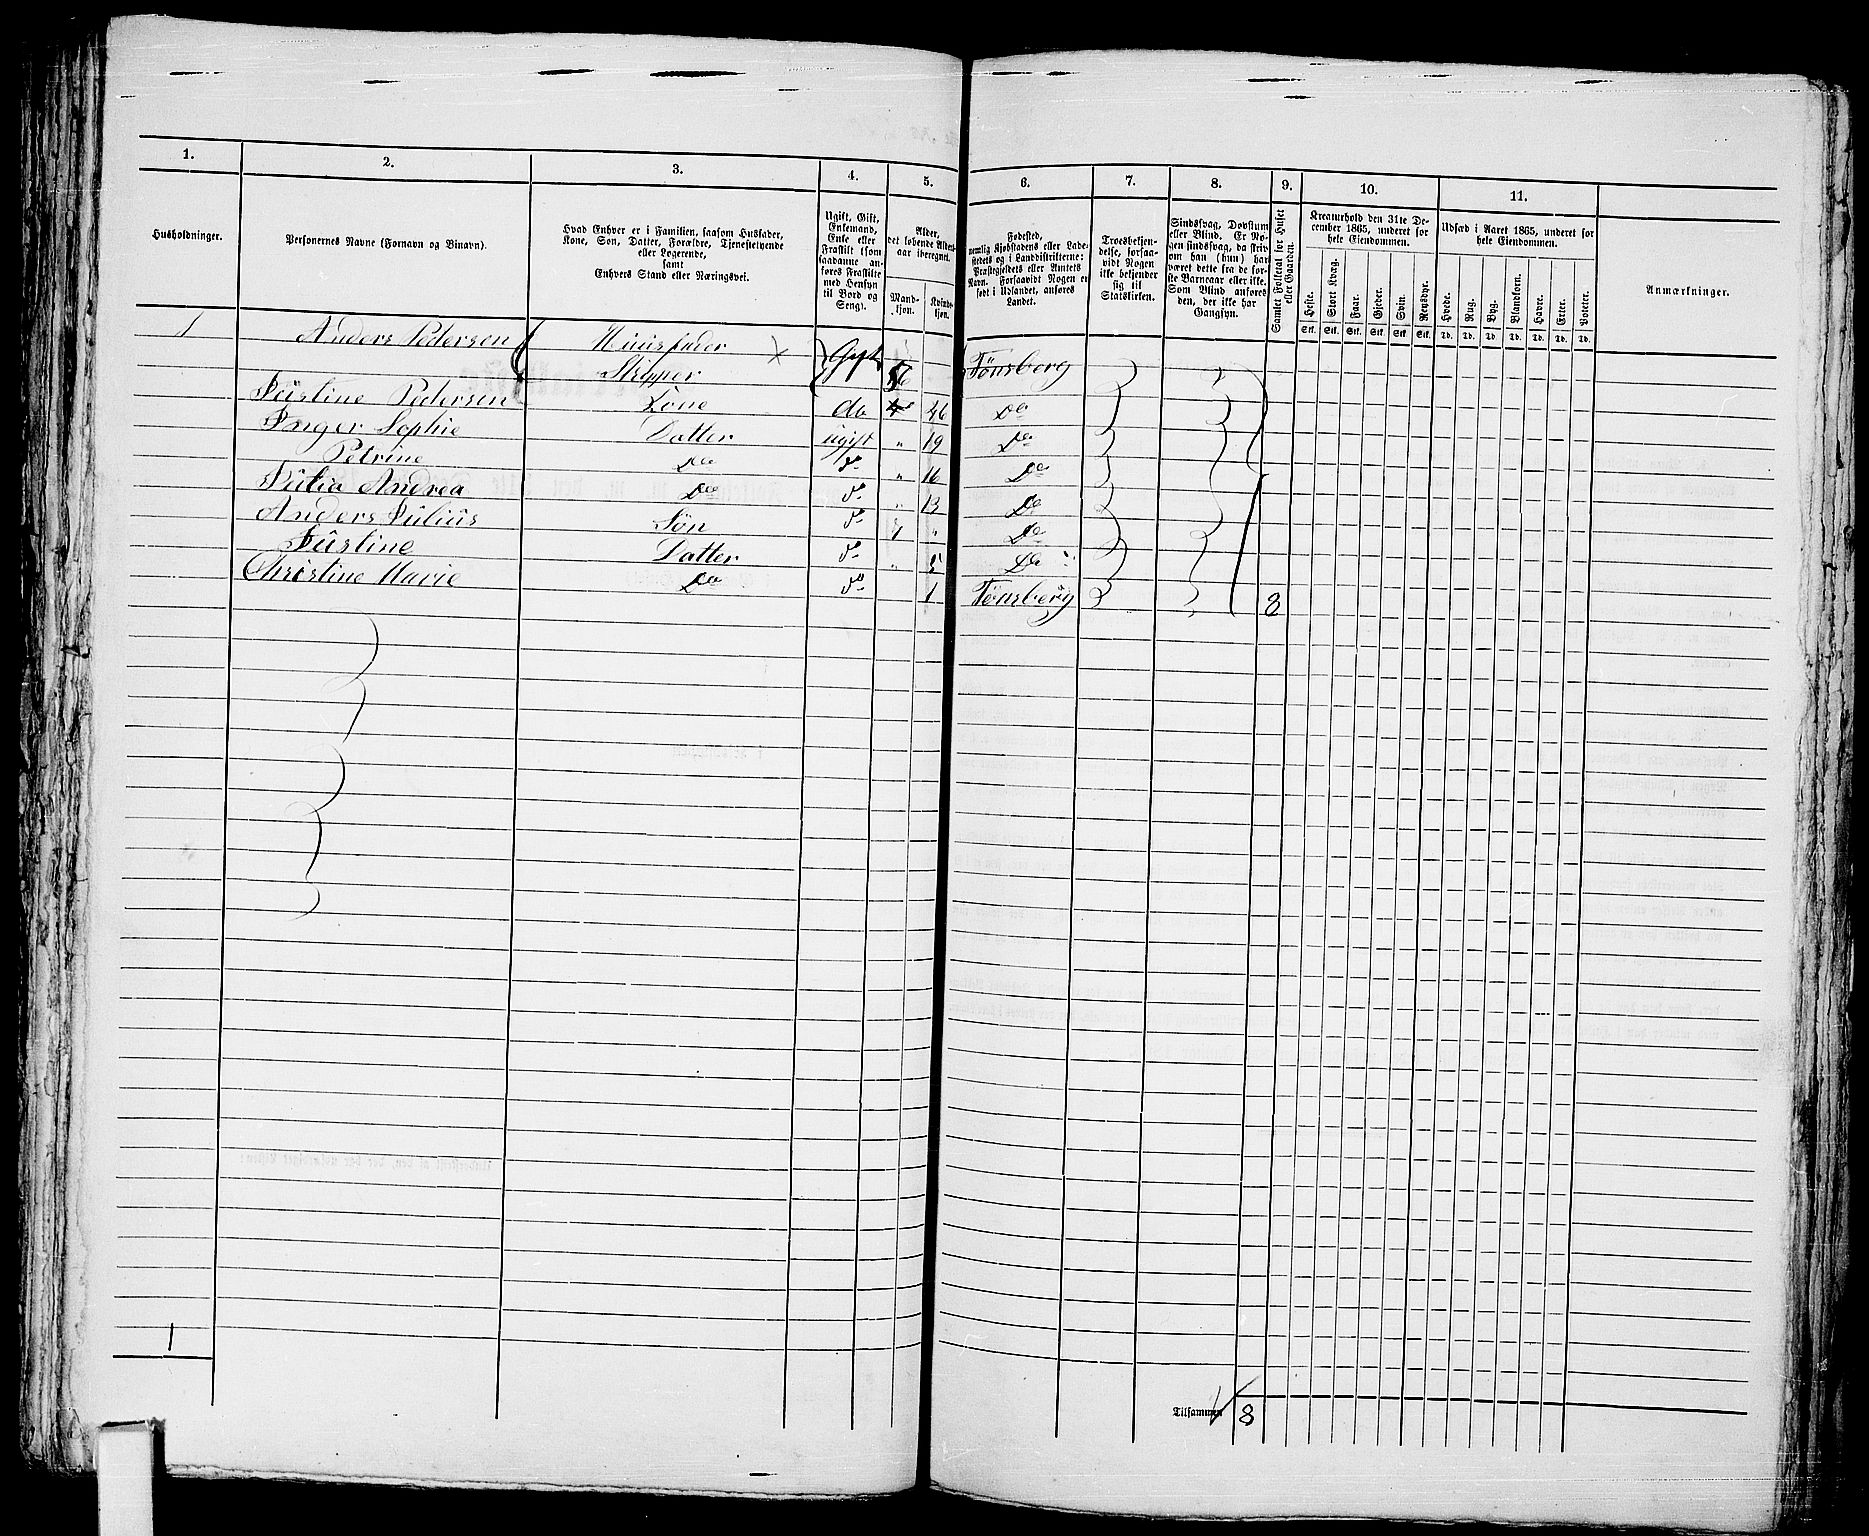 1. 2. 3. 4. 5. 6. 7. 8. 9. 10. 11.
Husholdninger.
Personernes Navne (Fornavn og Binavn).
Hvad Enhver er i Familien, saasom Husfader,
Kone, Søn, Datter, Forældre, Tjenestetyende
eller Logerende,
samt
Enhvers Stand eller Næringsvei.
Ugift, Gift,
Enkemand,
Enke eller
Fraskilt (som
saadanne an-
føres Fraskilte
med Hensyn
til Bord og
Seng).
Alder,
det løbende Alders-
aar iberegnet.
Mand-
kjøn.
Kvinde-
kjøn.
Fødested,
nemlig Kjøbstadens eller Lade-
stedets og i Landdistrikterne:
Præstegjeldets eller Amtets
Navn. Forsaavidt Nogen er
født i Udlandet, anføres
Landet.
Troesbekjen-
delse, forsaa-
vidt Nogen
ikke bekjender
sig til
Statskirken.
Sindssvag, Døvstum
eller Blind. Er No-
gen sindssvag, da skriv
om han (hun) har
været dette fra de før-
ste Barneaar eller ikke.
Som Blind anføres
den, der ikke har
Gangsyn.
Samlet Folketal for Huset
eller Gaarden.
Kreaturhold den 31te De-
cember 1865, underet for
hele Eiendommen.
Heste. Stort Kvæg. Faar. Gjeder. Svin. Rensdyr.
Stk. Stk. Stk. Stk. Stk. Stk.
Udsæd i Aaret 1865, underet for
hele Eiendommen.
Hvede. Rug. Byg. Blandkorn. Havre. Erter. Poteter.
Td. Td. Td. Td. Td. Td. Td.
Anmærkninger.
1 Anders Pedersen Huusfader Gift
Skipper 56 Tönsberg
Jüstine Pedersen Kone do 46 Do
Inger Sophie Datter ugift " 19 Do
Petrine Do do " 16 Do
Julia Andrea Do do " 13 Do
Anders Julius Søn do 7 " Do
Jüstine Datter do " 5 Do
Christine Marie Do do 1 Tönsberg 8
1
Tilsammen 8